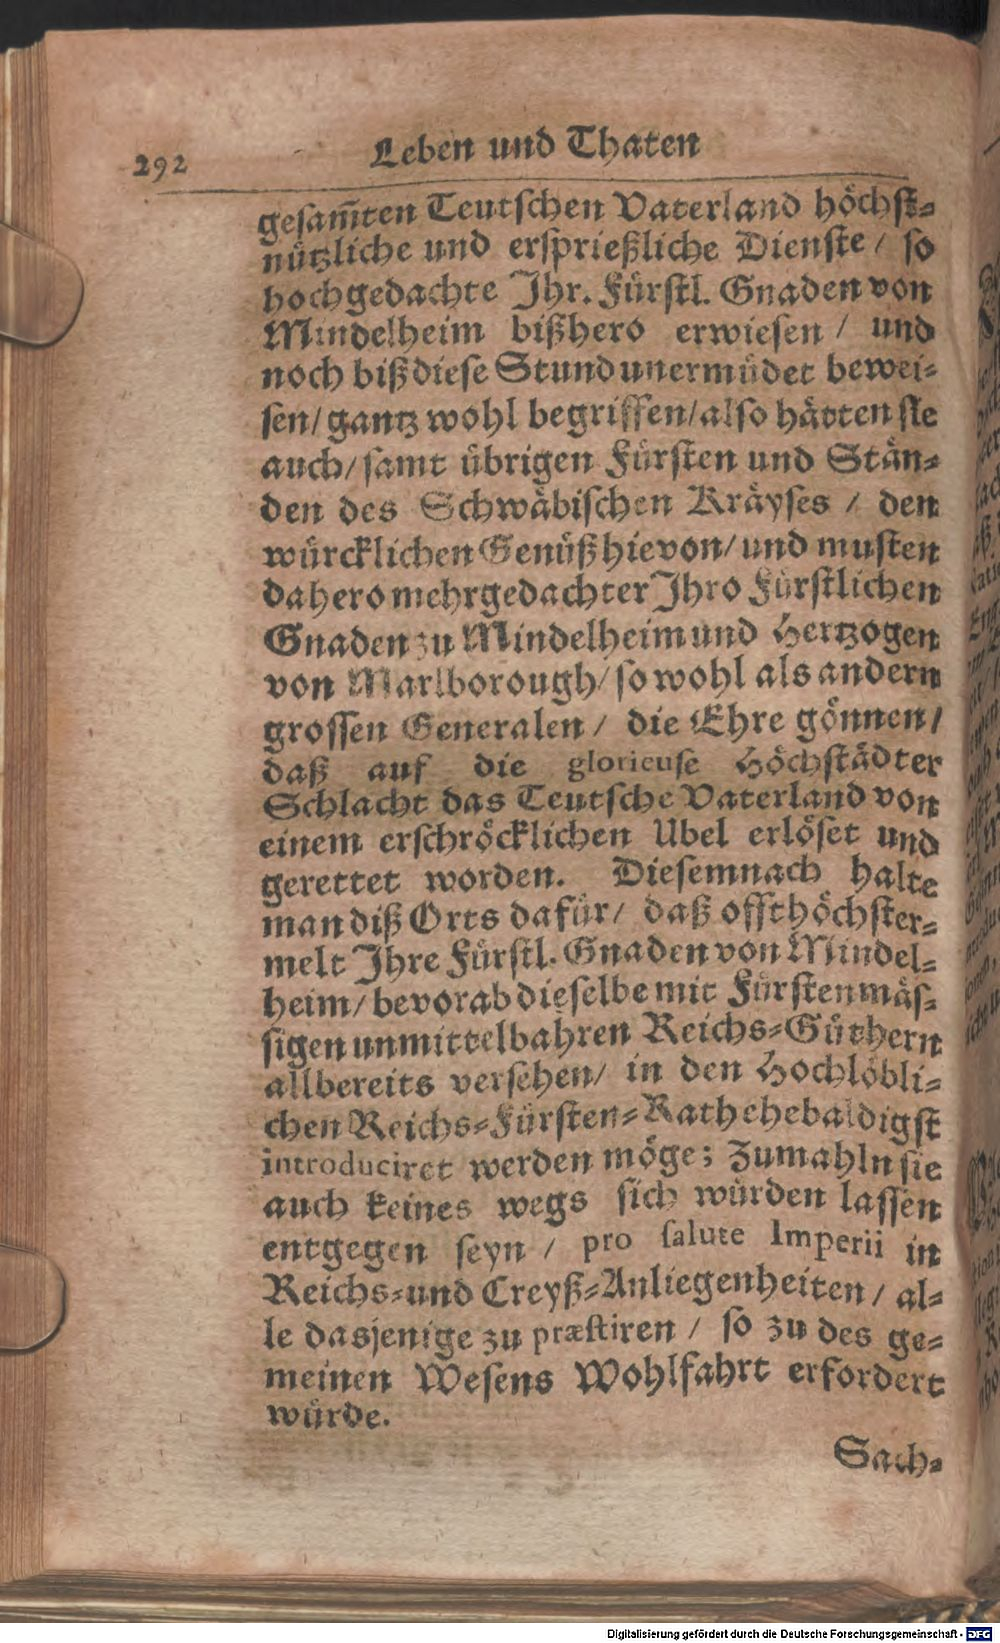 292 Leben und Thaten
gesam̃ten Teutschen Vaterland höchst-
nützliche und ersprießliche Dienste / so
hochgedachte Ihr. Fürstl. Gnaden von
Mindelheim bißhero erwiesen / und
noch biß diese Stund unermüdet bewei-
sen/ gantz wohl begriffen/ also hätten sie
auch/ samt übrigen Fürsten und Stän-
den des Schwäbischen Kräyses / den
würcklichen Genüß hievon/ und musten
dahero mehrgedachter Ihro Fürstlichen
Gnaden zu Mindelheim und Hertzogen
von Marlborough/ so wohl als andern
grossen Generalen / die Ehre gönnen/
daß auf die glorieuse Höchstädter
Schlacht das Teutsche Vaterland von
einem erschröcklichen Ubel erlöset und
gerettet worden. Diesemnach halte
man diß Orts dafür/ daß offthöchster-
melt Ihre Fürstl. Gnaden von Mindel-
heim/ bevorab dieselbe mit Fürstenmäs-
sigen unmittelbahren Reichs-Güthern
allbereits versehen/ in den Hochlöbli-
chen Reichs-Fürsten-Rath ehebaldigst
introduciret werden möge; Zumahln sie
auch keines wegs sich würden lassen
entgegen seyn / pro salute Imperii in
Reichs-und Creyß-Anliegenheiten / al-
le dasjenige zu præstiren / so zu des ge-
meinen Wesens Wohlfahrt erfordert
würde.
Sach-
Digitalisierung gefördert durch die Deutsche Forschungsgemeinschaft - DFG